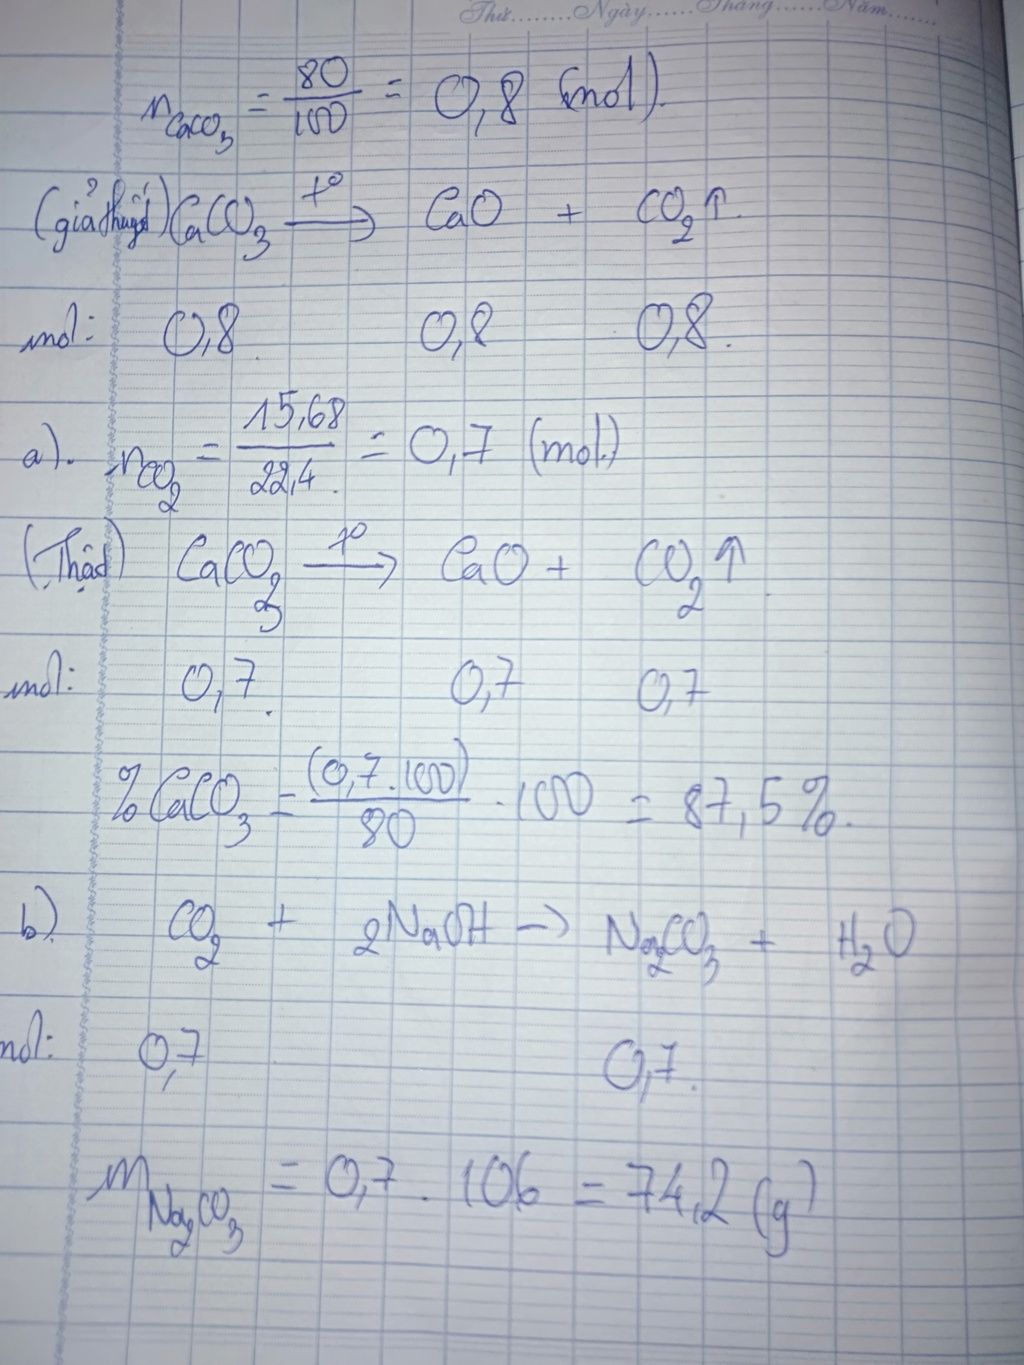 Thứ........Ngày......Tháng......Năm.......
n CaCO₃ = 80/100 = 0,8 (mol).
(giả thuyết) CaCO₃ —t°→ CaO + CO₂↑.
mol: 0,8 0,8 0,8.
a). nCO₂ = 15,68/22,4. = 0,7 (mol.)
CaCO₃ —t°→ CaO + CO₂↑.
mol: 0,7. 0,7 0,7
% CaCO₃ = (0,7.100)/80 . 100 = 87,5%.
b). CO₂ + 2NaOH → Na₂CO₃ + H₂O
mol: 0,7 0,7.
m Na₂CO₃ = 0,7 . 106 = 74,2 (g)